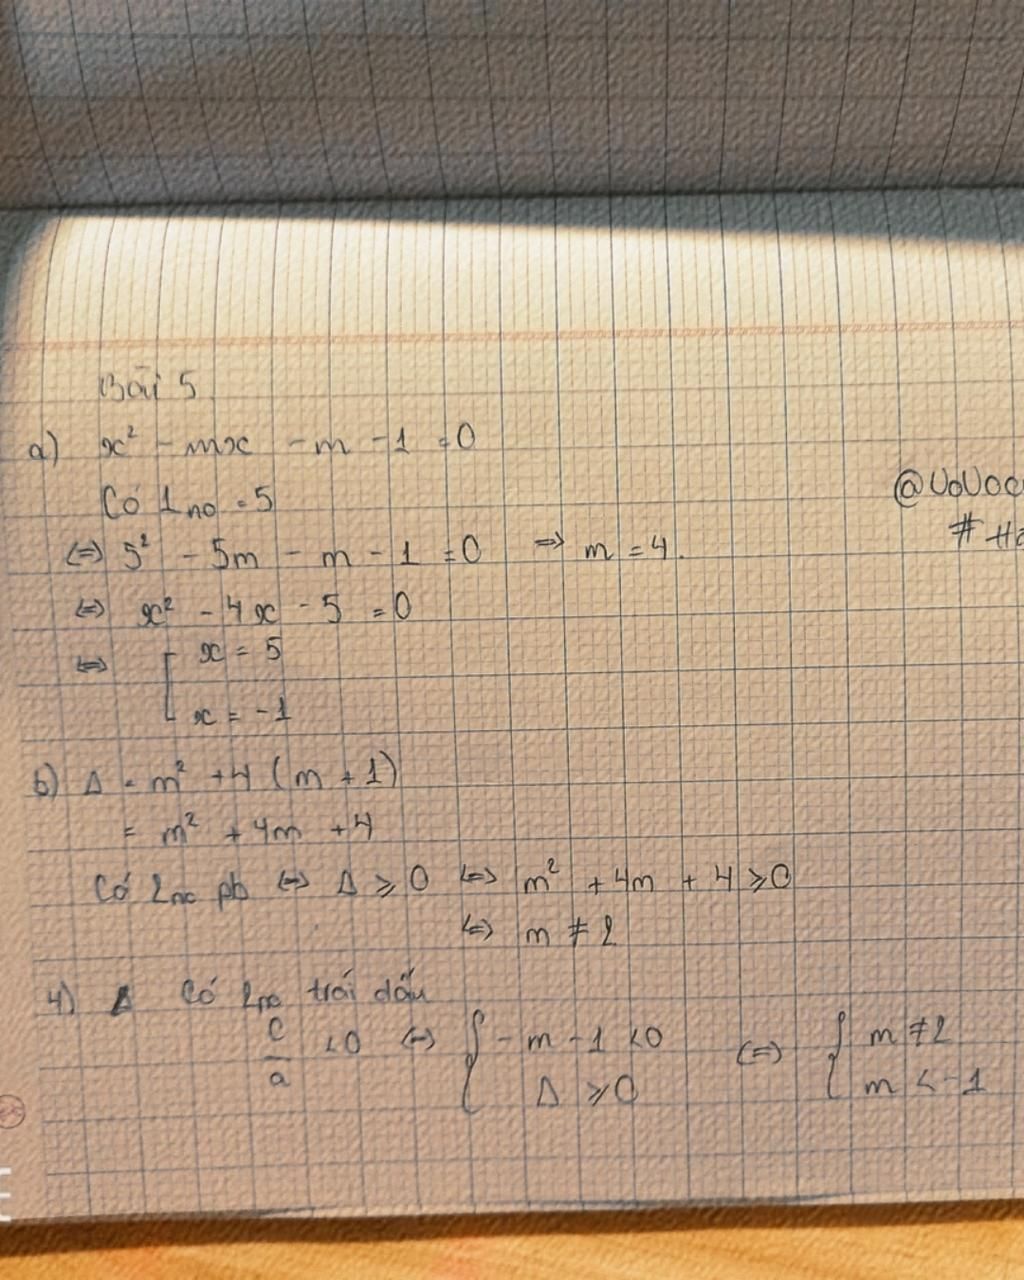 Bài 5
a) x² - mx - m - 1 = 0
Có 1 no = 5
<=> 5² - 5m - m - 1 = 0 => m = 4.
<=> x² - 4x - 5 = 0
<=> [ x = 5
x = -1
b) Δ = m² + 4 (m + 1)
= m² + 4m + 4
Có 2 no pb <=> Δ ⩾ 0 <=> m² + 4m + 4 ⩾ 0
<=> m ≠ 2
4) Δ Có 2 no trái dấu
c/a < 0 <=> { - m - 1 < 0 <=> { m ≠ 2
Δ ⩾ 0 m < -1